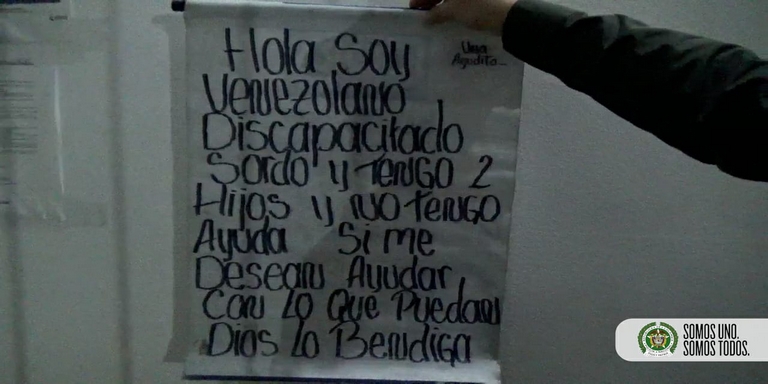 Hola Soy
Una
Ayudita...
Venezolano
Discapacitado
Sordo y tengo 2
Hijos y no tengo
Ayuda Si me
Desean Ayudar
Con Lo Que Puedan
Dios Lo Bendiga
SOMOS UNO.
SOMOS TODOS.